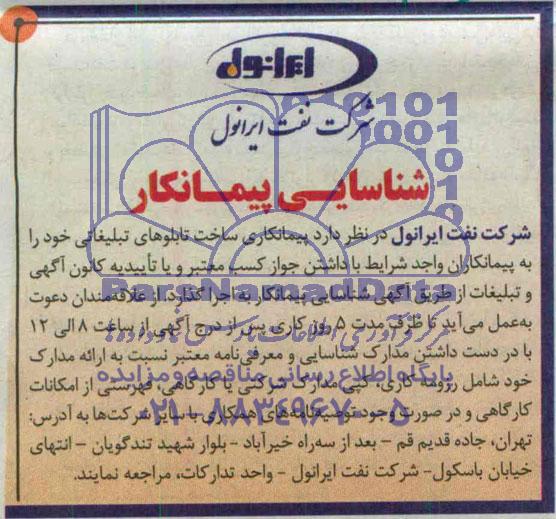 ایرانول
شرکت نفت ایرانول
شناسایی پیمانکار
شرکت نفت ایرانول در نظر دارد پیمانکاری ساخت تابلوهای تبلیغاتی خود را
به پیمانکاران واجد شرایط با داشتن جواز کسب معتبر و یا تأییدیه کانون آگهی
و تبلیغات از طریق آگهی شناسایی پیمانکار به اجرا گذارد. از علاقه‌مندان دعوت
به‌عمل می‌آید تا ظرف مدت ۵ روز کاری پس از درج آگهی از ساعت ۸ الی ۱۲
با در دست داشتن مدارک شناسایی و معرفی‌نامه معتبر نسبت به ارائه مدارک
خود شامل رزومه کاری، کپی مدارک شرکتی یا کارگاهی، فهرستی از امکانات
کارگاهی و در صورت وجود توصیه‌نامه‌های همکاری با سایر شرکت‌ها به آدرس:
تهران، جاده قدیم قم - بعد از سه‌راه خیرآباد - بلوار شهید تندگویان - انتهای
خیابان باسکول- شرکت نفت ایرانول - واحد تدارکات، مراجعه نمایند.
ParsNamadData
پایگاه اطلاع رسانی مناقصه و مزایده
۰۲۱-۸۸۳۴۹۶۷۰-۵